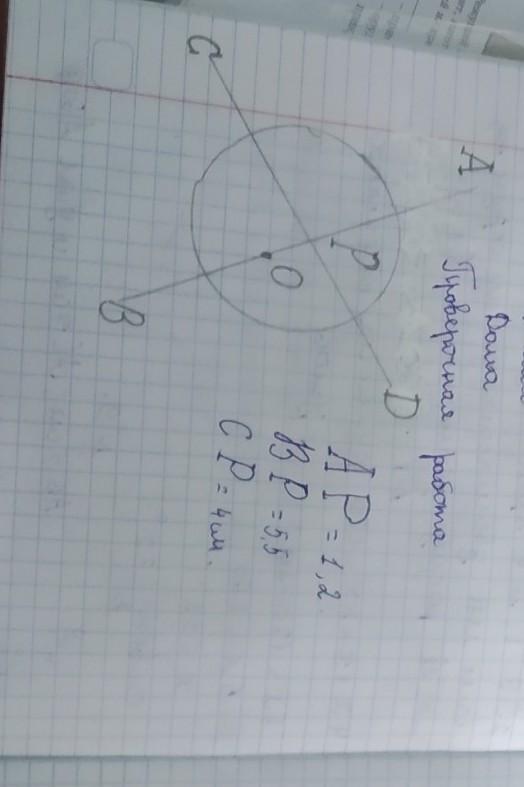 Дома
Проверочная работа
A
C
P
O
B
D
AP = 1,2
BP = 5,5
CP = 4 см.